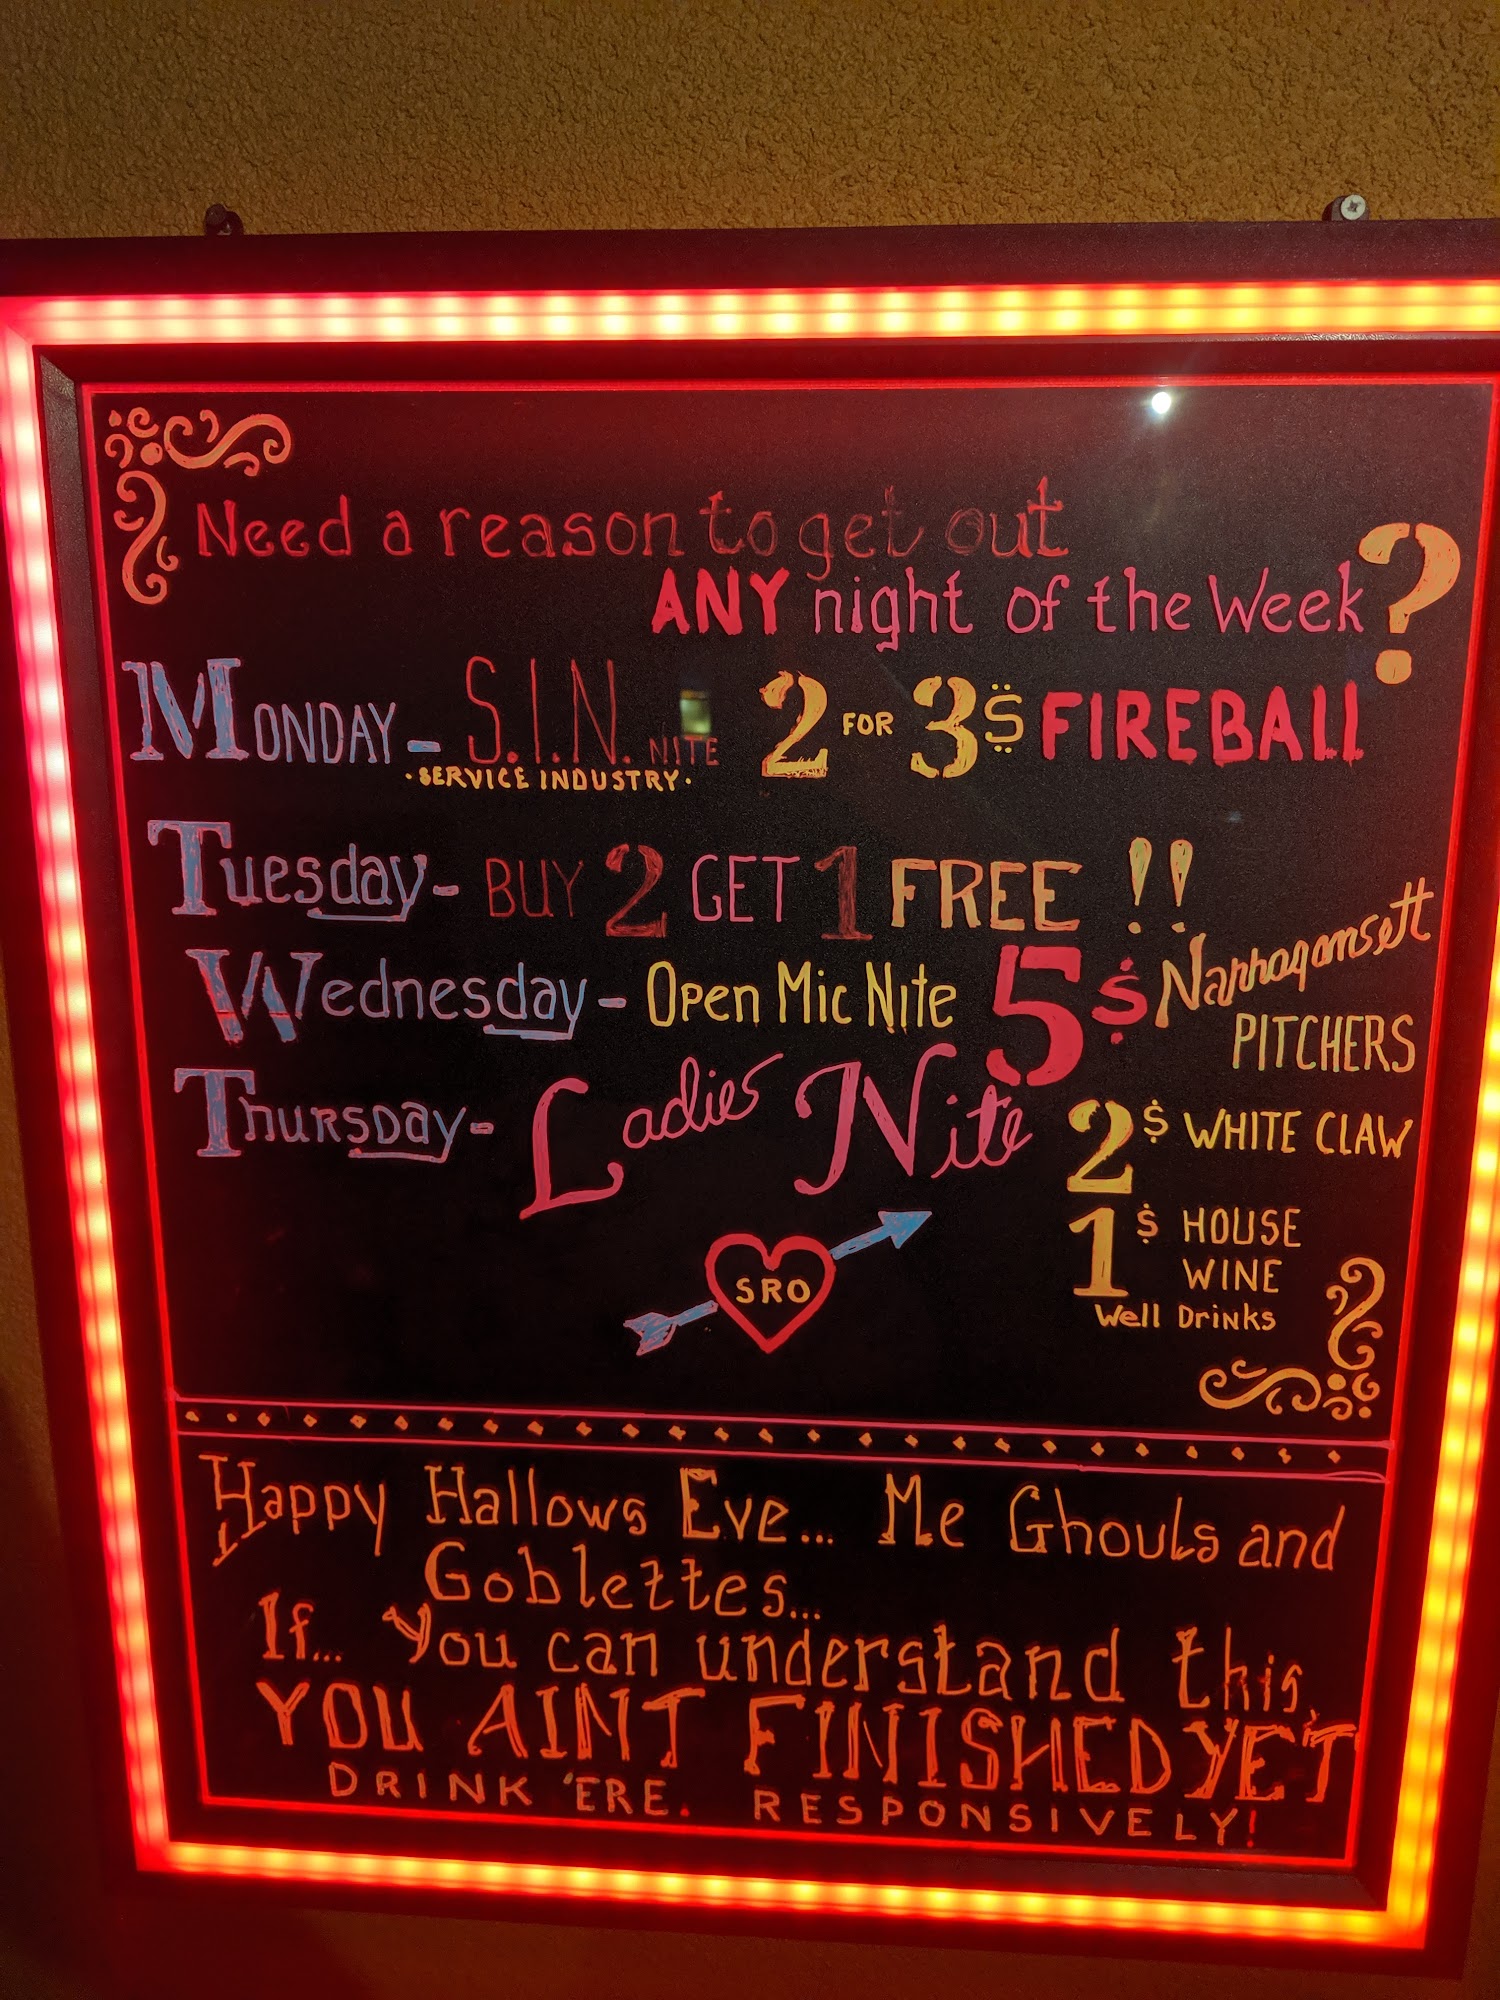 Need a reason to get out
ANY night of the Week?
MONDAY - S.I.N. NITE 2 FOR 3$ FIREBALL
·SERVICE INDUSTRY·
Tuesday - BUY 2 GET 1 FREE !!
Wednesday - Open Mic Nite 5$ Narragansett
PITCHERS
Thursday - Ladies Nite 2$ WHITE CLAW
1$ HOUSE
WINE
Well Drinks
SRO
Happy Hallows Eve... Me Ghouls and
Goblettes...
If... You can understand this,
YOU AINT FINISHED YET
DRINK 'ERE. RESPONSIVELY!